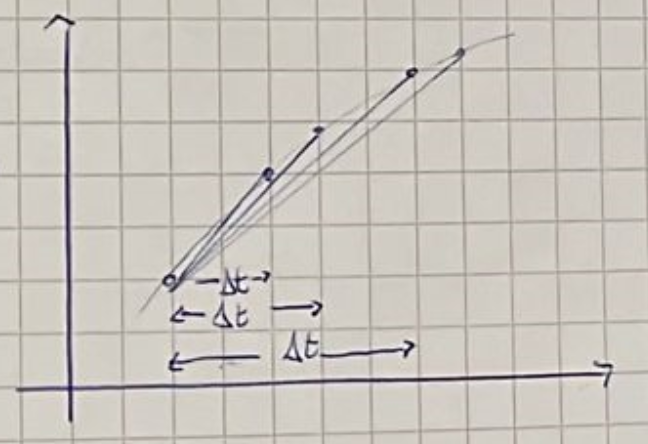 Δt
Δt
Δt